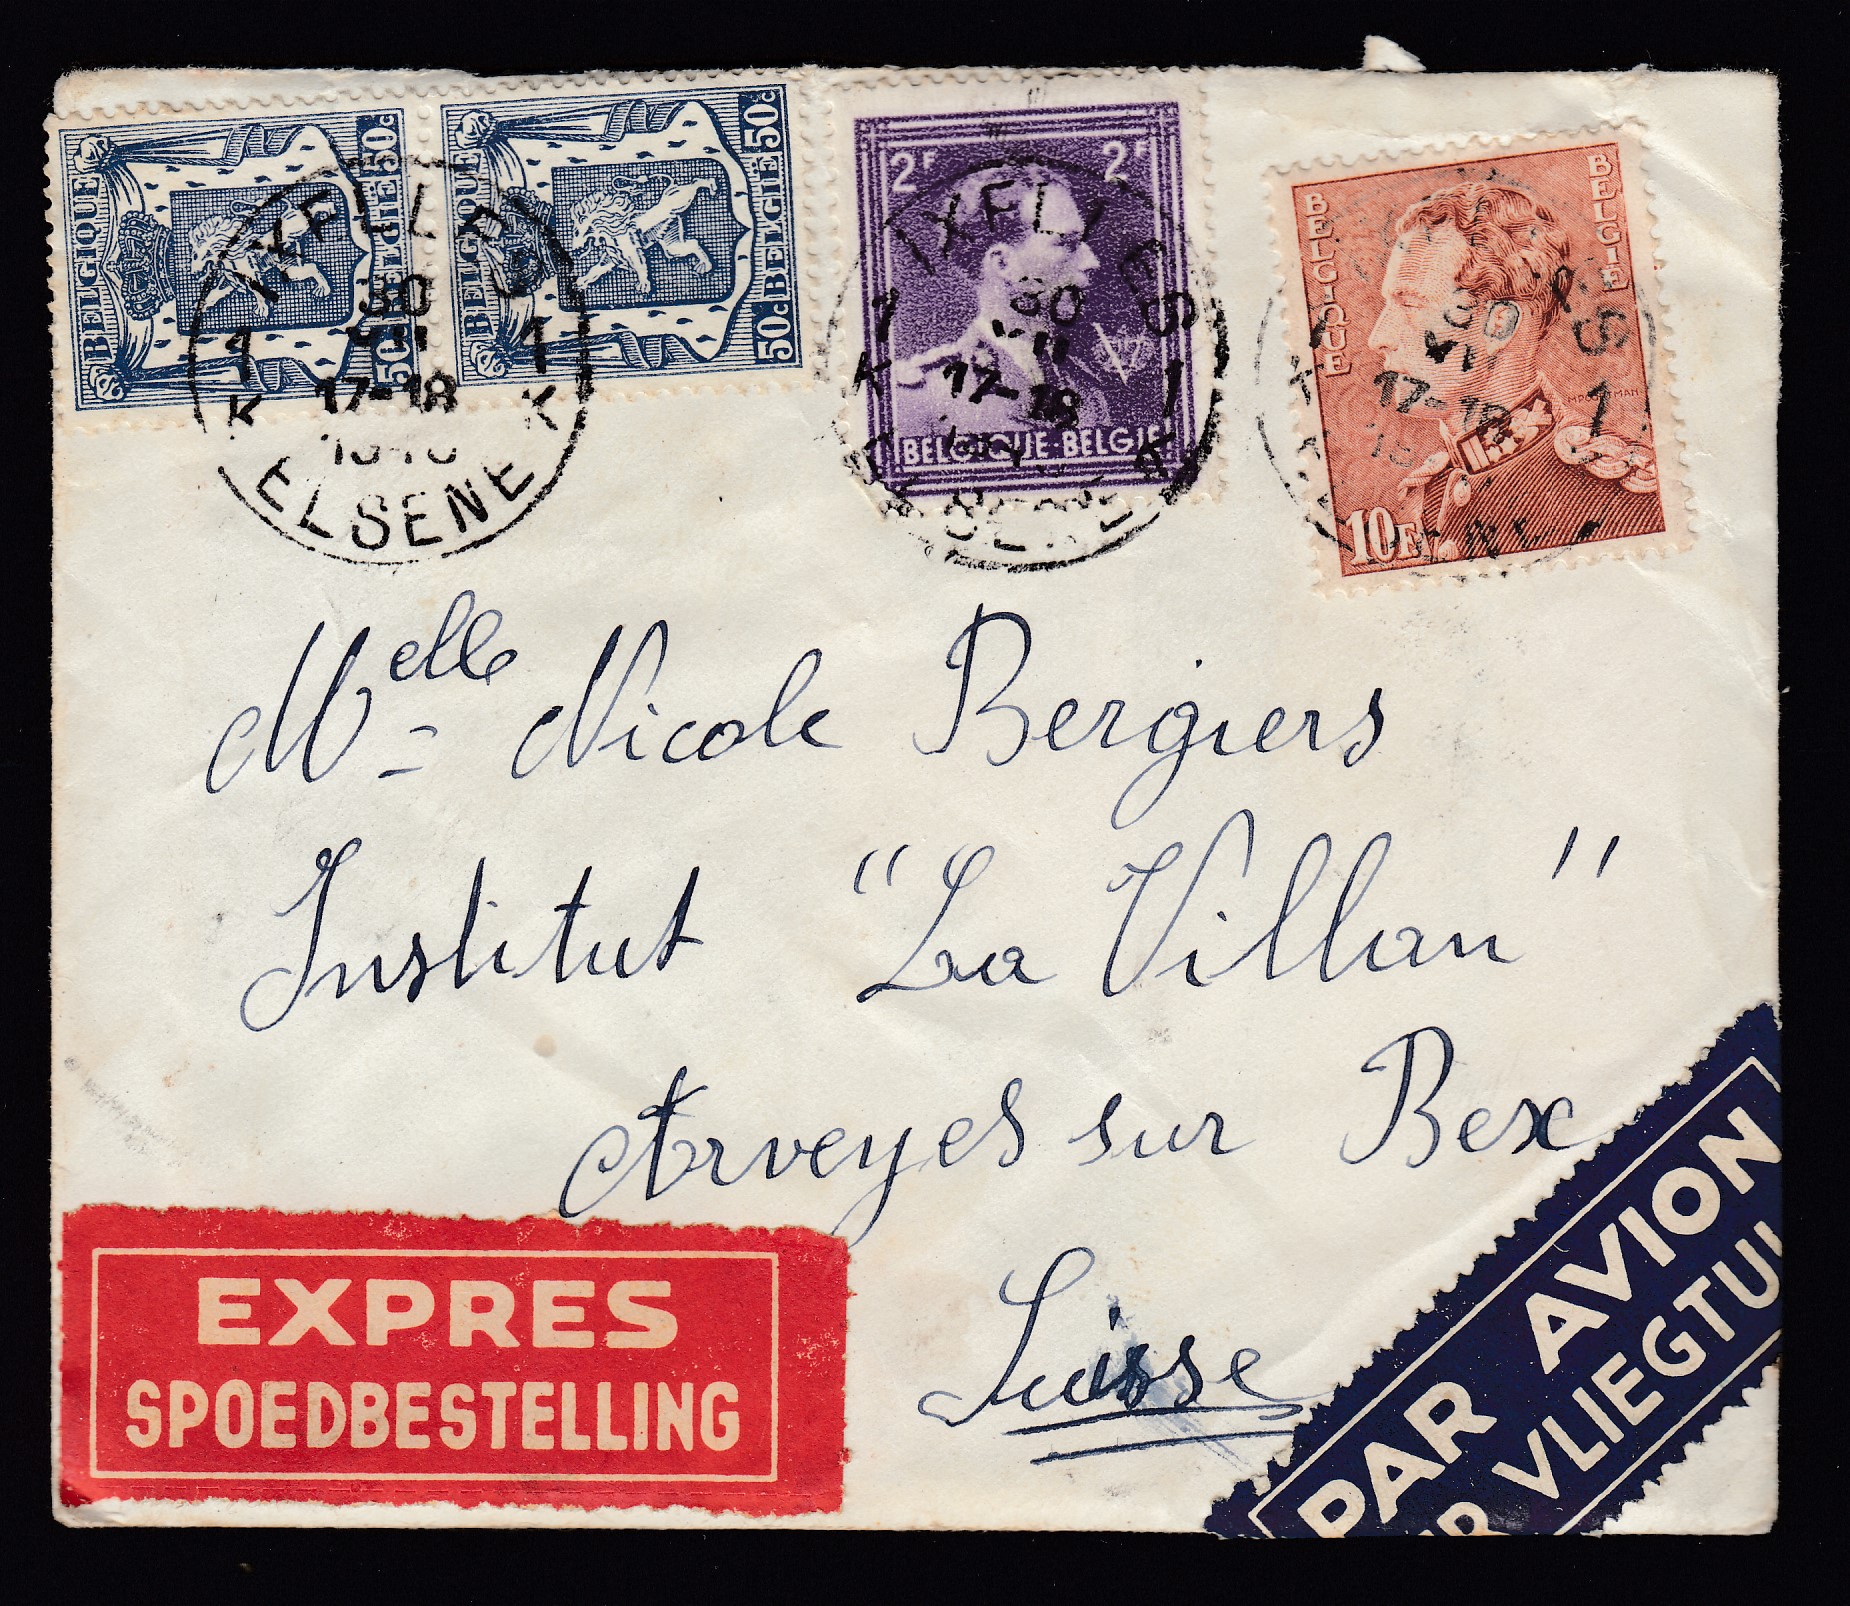 BELGIQUE BELGIE 50c 50c
BELGIQUE BELGIE 50c 50c
2F 2F
BELGIQUE-BELGIE
BELGIQUE BELGIE
10F
IXELLES
30
VII
17-18
1 1
K K
ELSENE
IXELLES
30
VII
17-18
1 1
K K
30
VII
17-18
1
Melle Nicole Bergiers
Institut "La Villan"
Arveyes sur Bex
Suisse
EXPRES
SPOEDBESTELLING
PAR AVION
VLIEGTUI